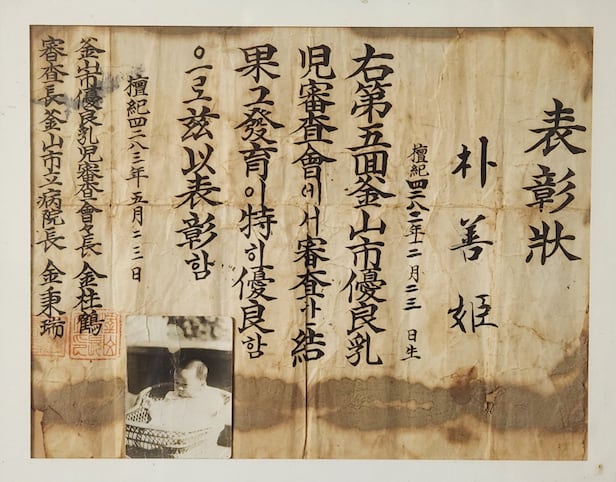 表彰狀
朴善姬
檀紀四二八二年十二月二三日生
右第五回釜山市優良乳
児審査會에서審査한結
果그發育이特히優良함
으로玆以表彰함
檀紀四二八三年五月二三日
釜山市優良乳児審査會々長 金柱鶴
審査長釜山市立病院長 金秉瑞